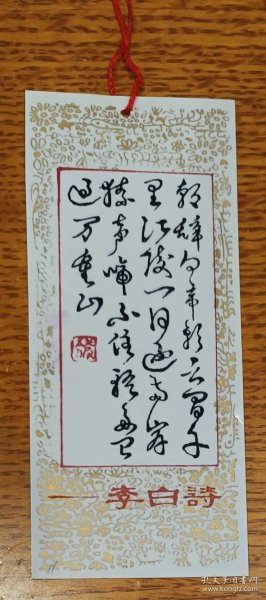 朝辞白帝彩云间千
里江陵一日还两岸
猿声啼不住轻舟已
过万重山
——李白詩
孔夫子旧书网
www.kongfz.com